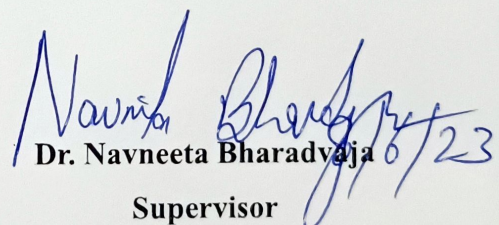 Navnita Bharadvaja
Dr. Navneeta Bharadvaja
Supervisor